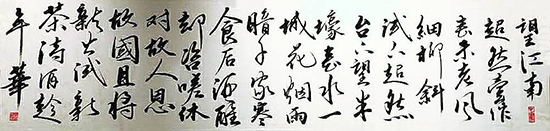 望江南
超然臺作
春未老風
細柳斜
試上超然
台上望半
壕春水一
城花烟雨
暗千家寒
食后酒醒
却咨嗟休
对故人思
故國且將
新火試新
茶詩酒趁
年華